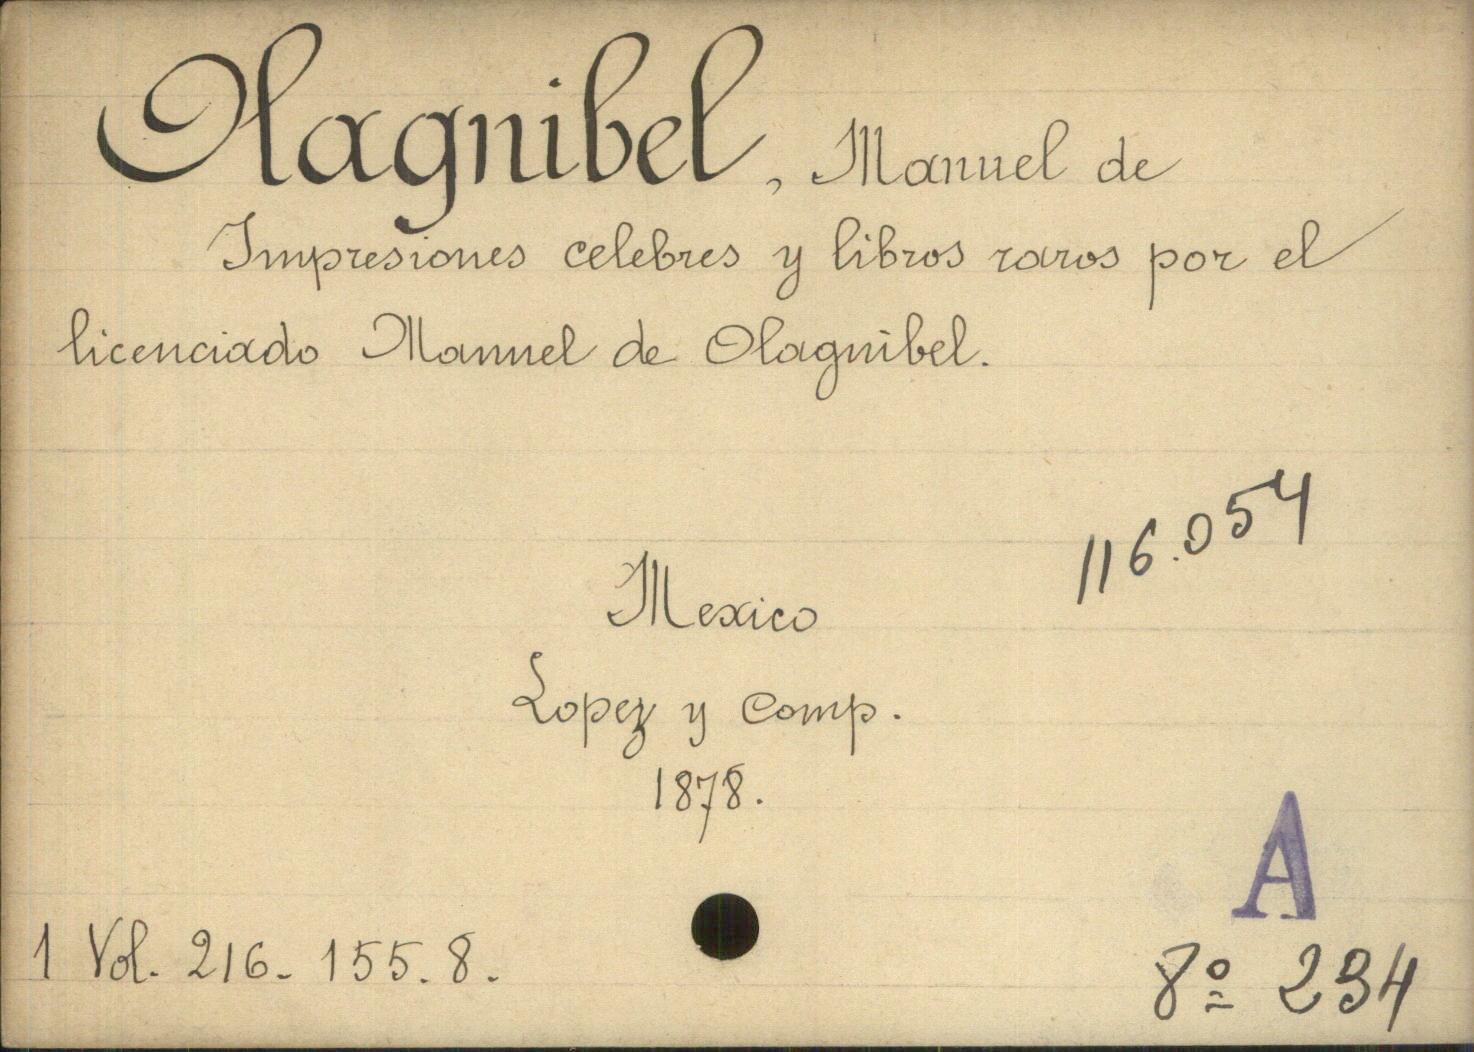 Olagnibel, Manuel de
Impresiones celebres y libros raros por el
licenciado Manuel de Olagnibel.
116.054
Mexico
Lopez y Comp.
1878.
A
1 Vol. 216. 155. 8.
8º 234